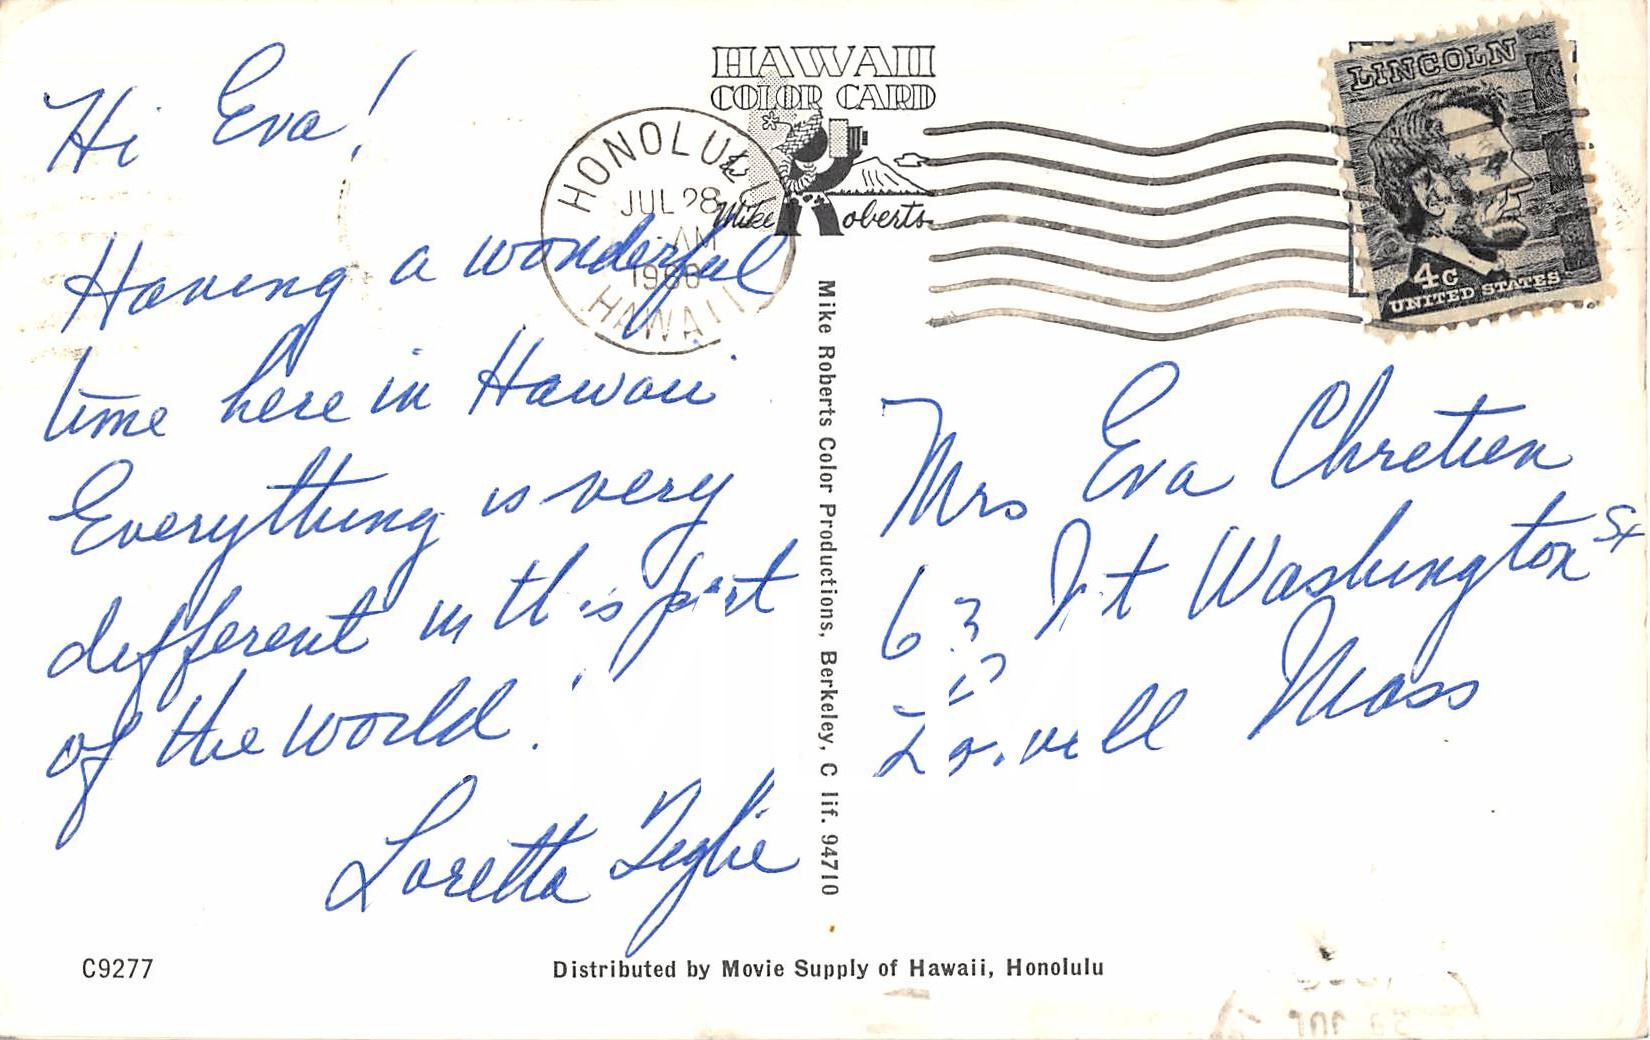 Hi Eva!
Having a wonderful
time here in Hawaii
Everything is very
different in this part
of the world.
Loretta
C9277
HAWAII
COLOR CARD
Mike Roberts
HONOLULU
JUL 28
AM
HAWAII
Mike Roberts Color Productions, Berkeley, C lif. 94710
LINCOLN
4c
UNITED STATES
Mrs Eva Chretien
63 Mt Washington St
Lowell Mass
Distributed by Movie Supply of Hawaii, Honolulu